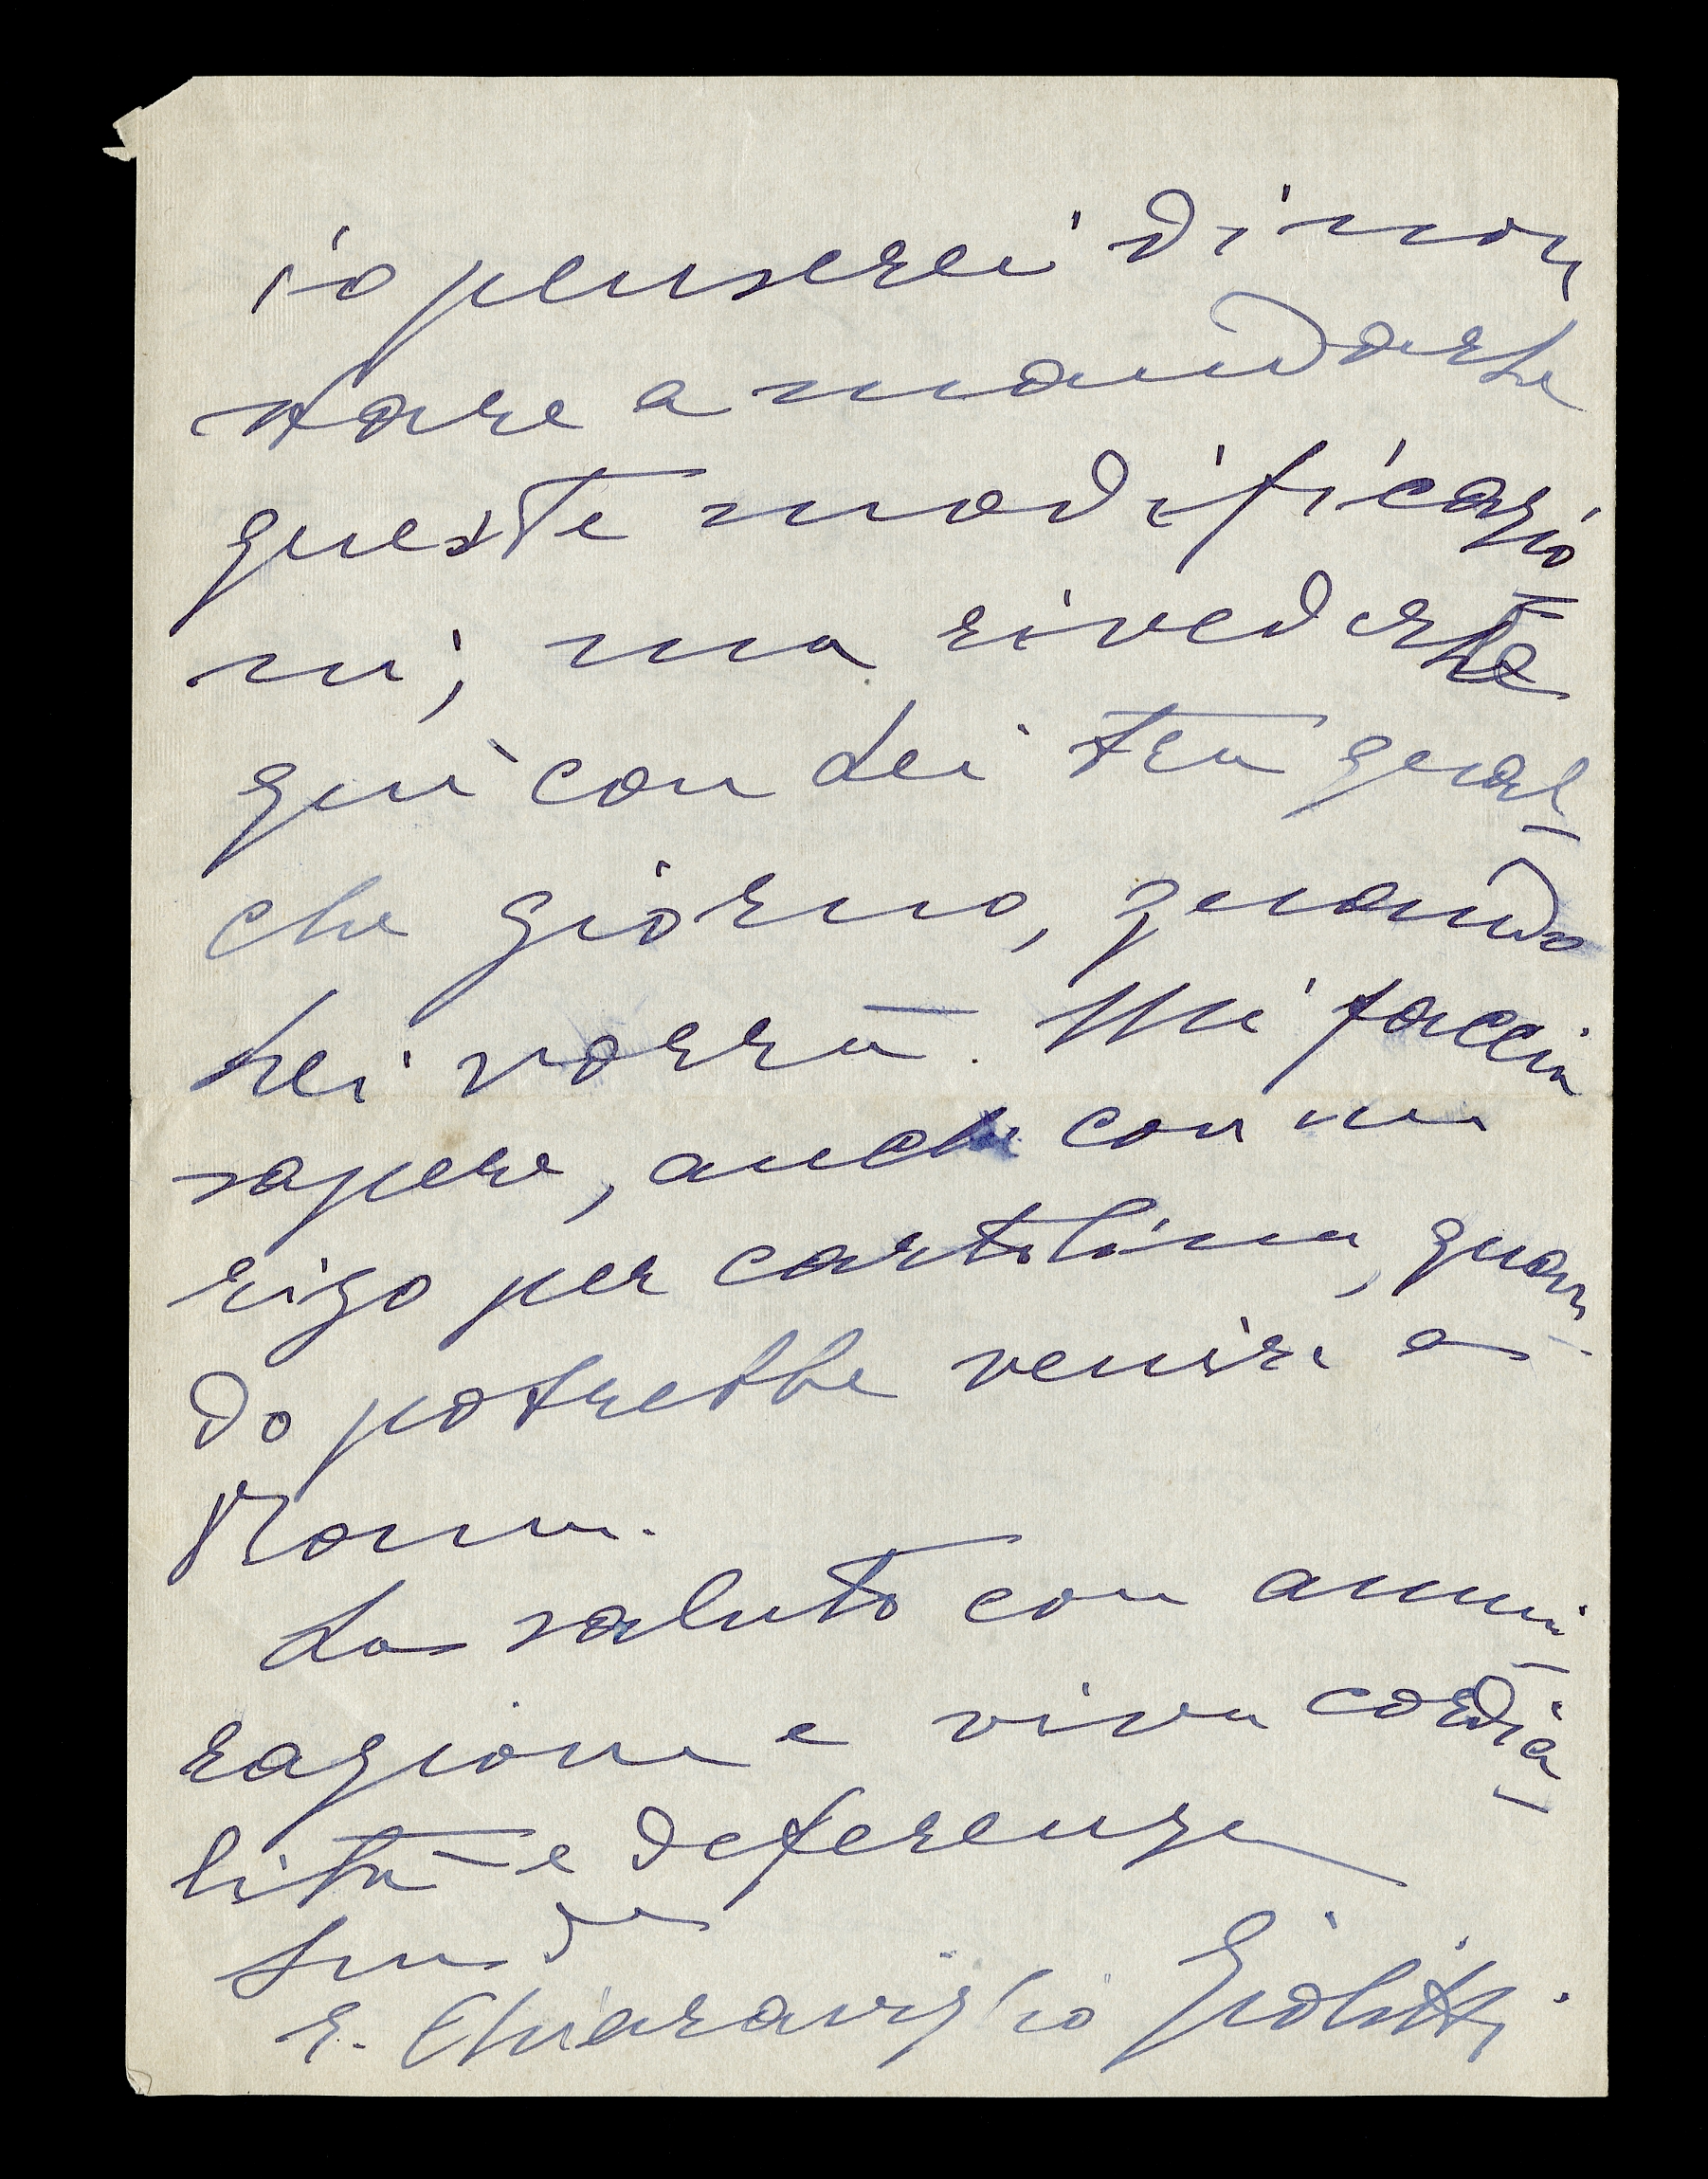 io penserei di non
stare a mandarle
queste modificazio
ni, ma rivederle
quì con Lei tra qual-
che giorno, quando
Lei vorrà. Mi faccia
sapere, anche con un
rigo per cartolina, quan-
do potrebbe venire a
Roma.
La saluto con ammi-
razione e viva cordia-
lità e deferenza
Sua
E. Chiaraviglio Giolitti